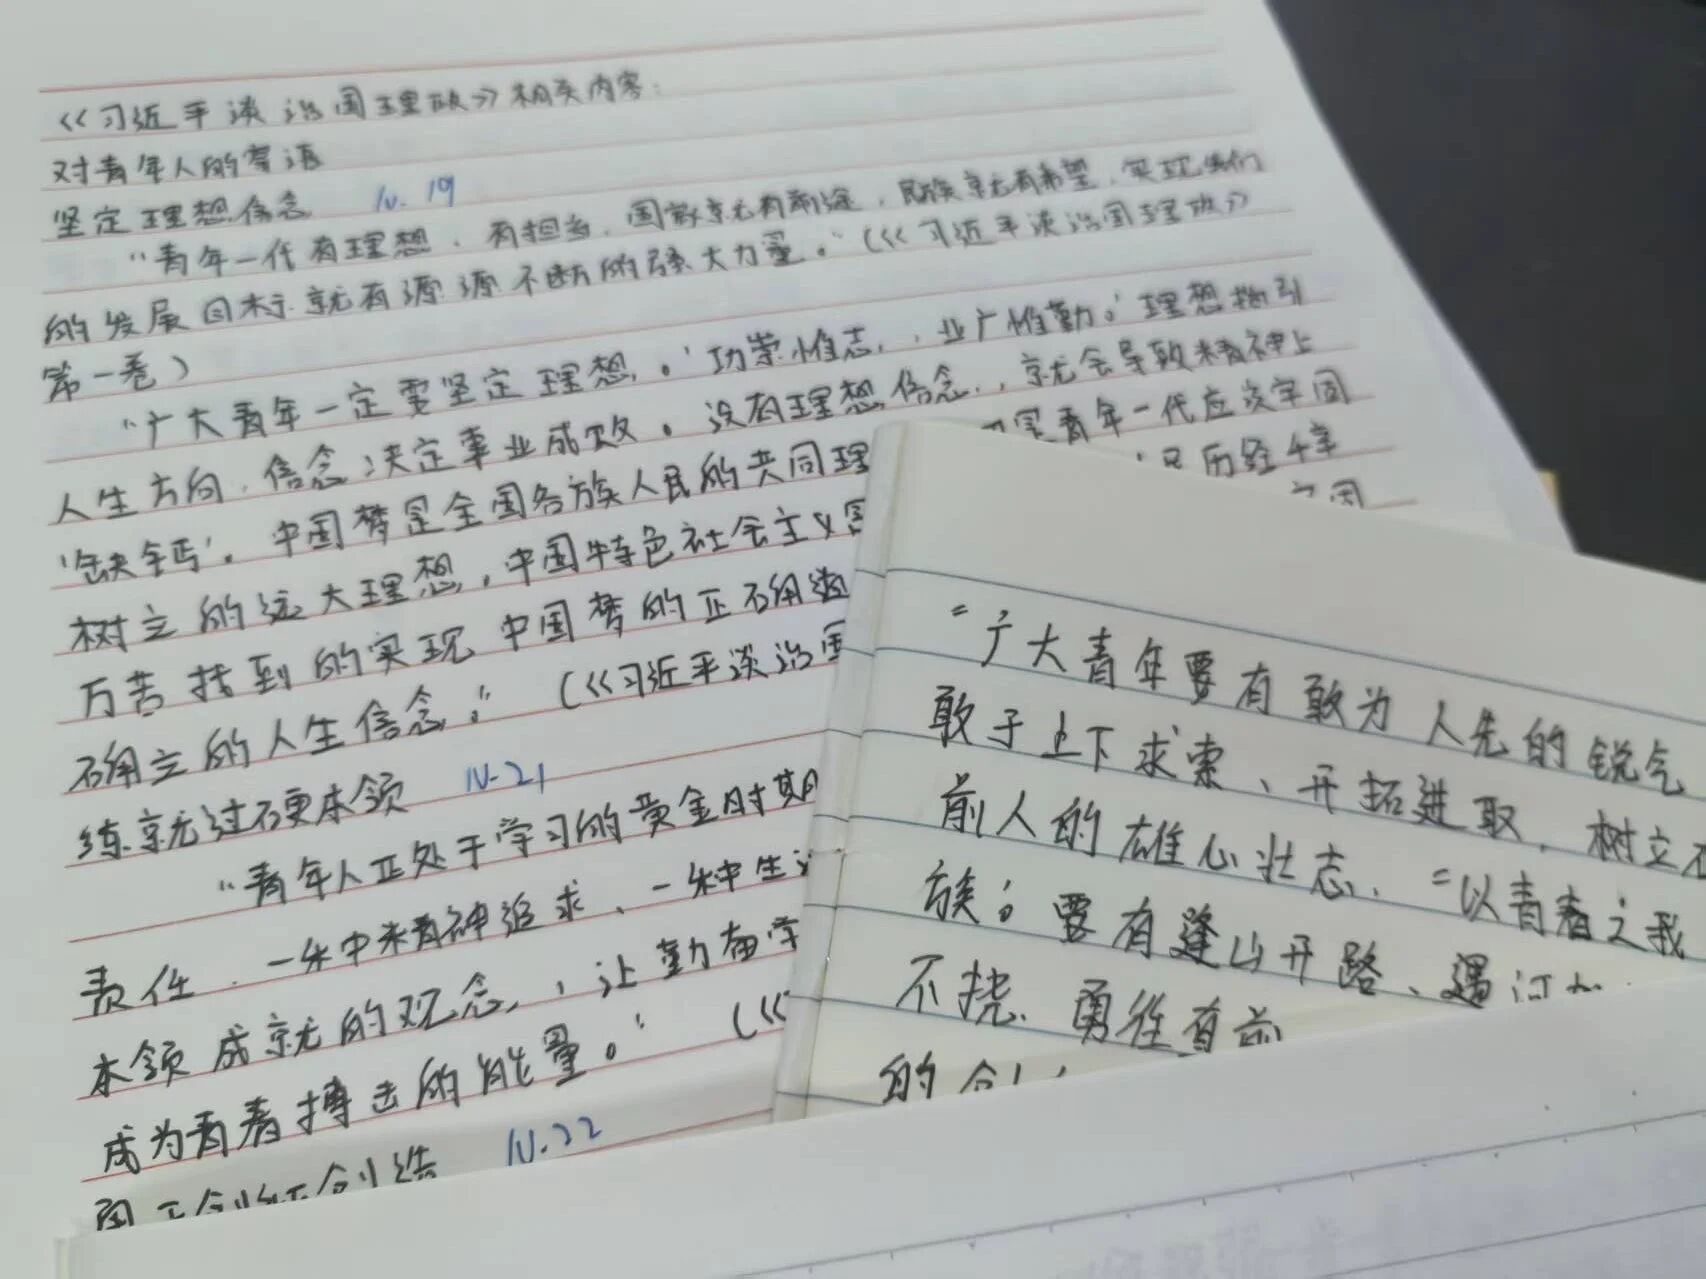 《习近平谈治国理政》相关内容：
对青年人的寄语
坚定理想信念 10.19
“青年一代有理想、有担当，国家就有前途，民族就有希望，实现我们
的发展目标就有源源不断的强大力量。”（《习近平谈治国理政》
第一卷）
“广大青年一定要坚定理想。‘功崇惟志，业广惟勤。’理想指引
人生方向，信念决定事业成败。没有理想信念，就会导致精神上
‘缺钙’。中国梦是全国各族人民的共同理 青年一代应该牢固
树立的远大理想，中国特色社会主义 历经千辛
万苦找到的实现中国梦的正确道
确立的人生信念。”（《习近平谈治国
练就过硬本领 10.21
“青年人正处于学习的黄金时期
责任、一种精神追求、一种生
本领成就的观念，让勤奋学
成为青春搏击的能量。”（《
10.22
“广大青年要有敢为人先的锐气
敢于上下求索、开拓进取，树立
前人的雄心壮志，“以青春之我
族；要有逢山开路、遇河
不挠、勇往直前
的创